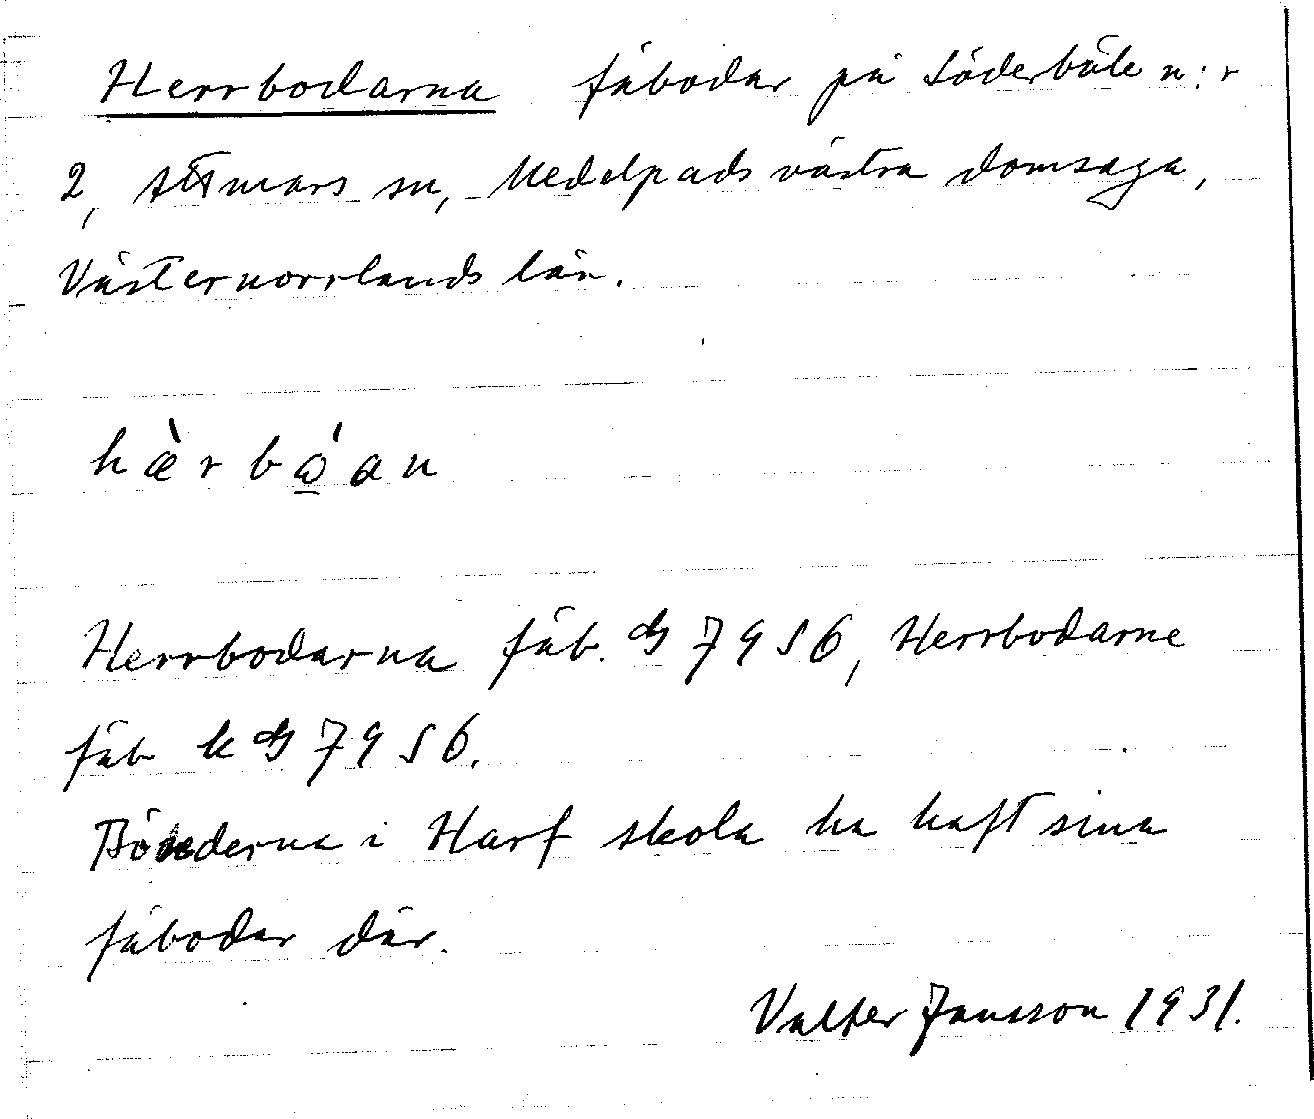 Herrbodarna fäbodar på Söderbäle n:r
2, Attmars sn, Medelpads västra domsaga,
Västernorrlands län.
hæ̀rbó̠an
Herrbodarna fäb. G 7956, Herrbodarne
fäb k G 7956.
Bönderna i Harf skola ha haft sina
fäbodar där.
Valter Jansson 1931.